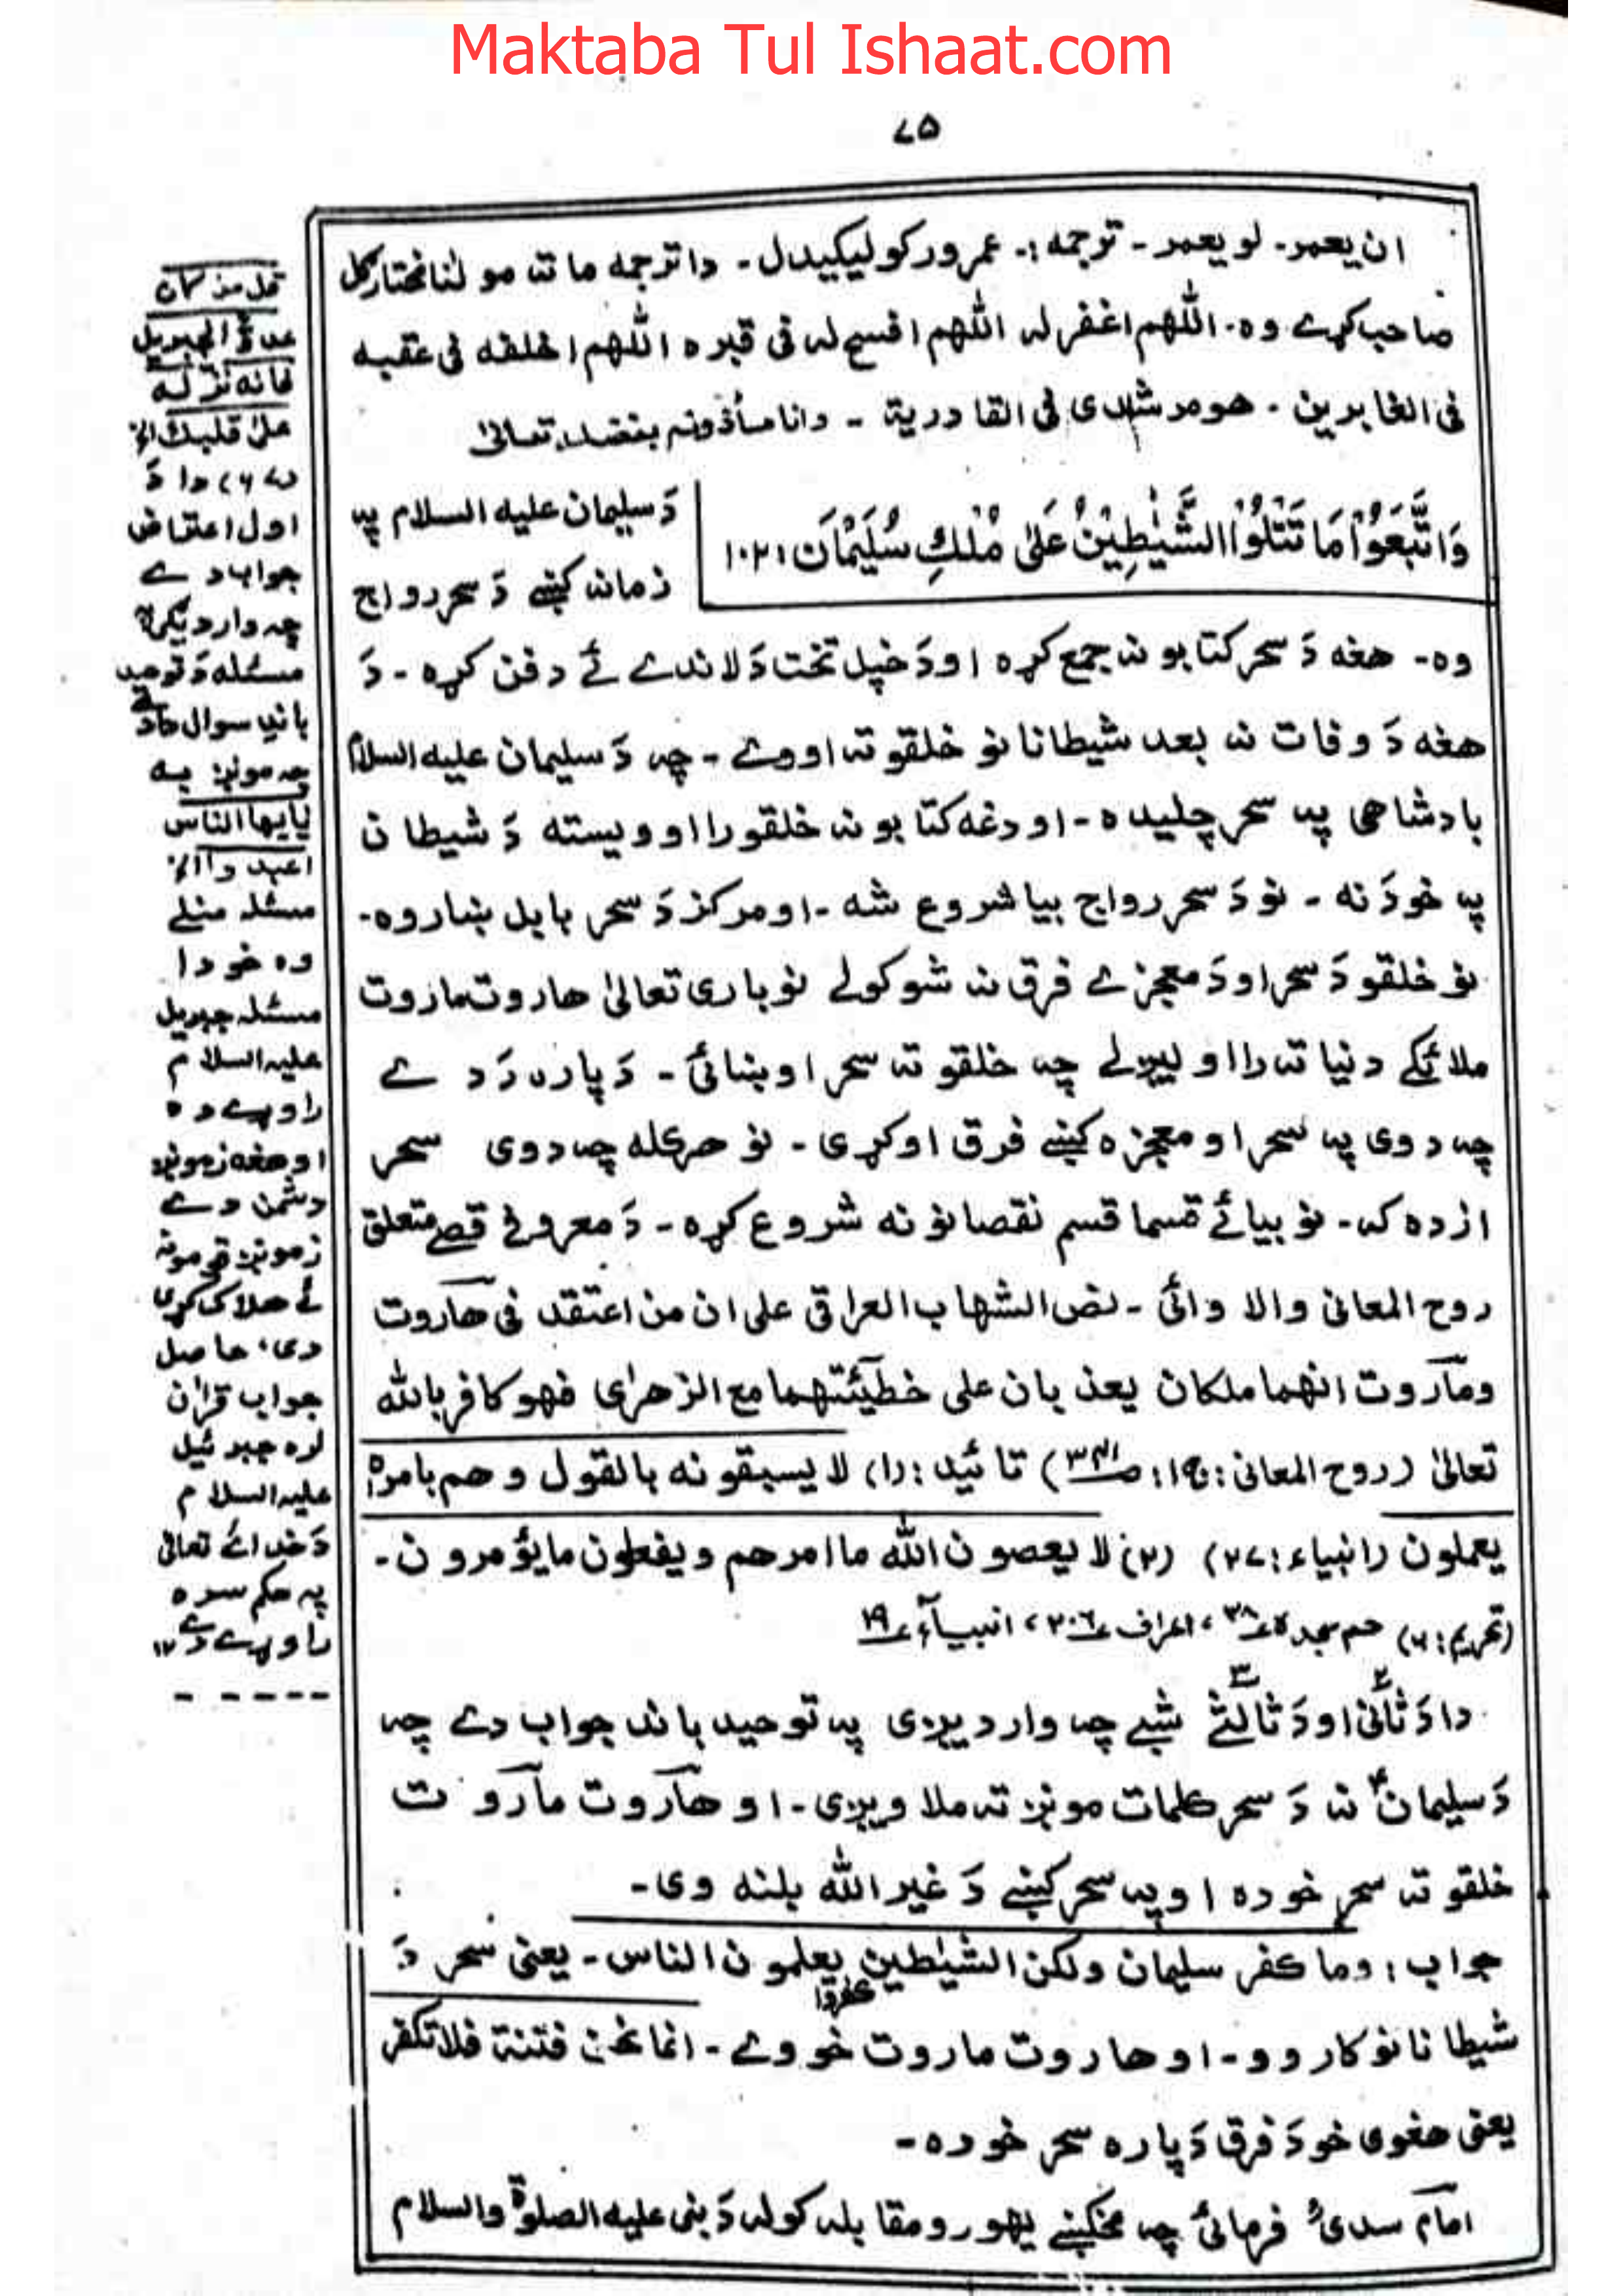 Maktaba Tul Ishaat.com
۷۵
ان یعمر۔ لو یعمر۔ ترجمہ:۔ عمر ورکولیکیدل۔ دا ترجمہ ما تہ مولٰنا مختارکل
صاحب کړے وہ۔ اللّٰهم اغفر لہ اللّٰهم افسح لہ فی قبرہ اللّٰهم اخلفه فی عقبہ
فی الغابرین۔ هو مرشدی فی القادریة۔ وانا مأذونہ بفضلہ تعالیٰ
وَاتَّبَعُوْا مَا تَتْلُوا الشَّيٰطِيْنُ عَلٰى مُلْكِ سُلَيْمَانَ ۱۰۲؛
دَ سلیمان علیه السلام پہ
زمانہ کښے دَ سحر رواج
وہ۔ هغه دَ سحر کتابونہ جمع کړہ او دَ خپل تخت دَ لاندے ئے دفن کړہ۔ دَ
هغه دَ وفات نہ بعد شیطانانو خلقو تہ اووے۔ چہ دَ سلیمان علیه السلام
بادشاهی پہ سحر چلیدہ۔ او دغه کتابونہ خلقو را اوویستہ دَ شیطان
پہ خودَنہ۔ نو دَ سحر رواج بیا شروع شہ۔ او مرکز دَ سحر بابل ښار وہ۔
نو خلقو دَ سحر او دَ معجزے فرق نہ شو کولے نو باری تعالیٰ هاروت ماروت
ملائکے دنیا تہ را اولیږلے چہ خلقو تہ سحر اوښائی۔ دَ پارہ دَ دے
چہ دوی پہ سحر او معجزہ کښے فرق اوکړی۔ نو هرکله چہ دوی سحر
ازدہ کہ۔ نو بیائے قسما قسم نقصانونه شروع کړہ۔ دَ معروفے قصے متعلق
روح المعانی والا وائی۔ نص الشهاب العراقی علی ان من اعتقد فی هآروت
ومآروت انهما ملکان یعذبان علی خطیئتهما مع الزهرٰی فهو کافر باللّٰه
تعالیٰ (روح المعانی: ج۱: ص۳۴۱) تائید: (۱) لا یسبقونه بالقول وهم بامرہ
یعملون (انبیاء: ۲۷) (۲) لا یعصون اللّٰه ما امرهم ویفعلون ما یؤمرون۔
(تحریم: ۶) حم سجدہ ۃ ع۳۸، اعراف ع۲۰۶، انبیآء ع۱۹
دا دَ ثانی۲ او دَ ثالثے۳ شبے چہ واردیږی پہ توحید باند جواب دے چہ
دَ سلیمانؑ نہ دَ سحر کلمات مونږ تہ ملاویږی۔ او هآروت مآروت
خلقو تہ سحر خودہ او پہ سحر کښے دَ غیر اللّٰه بلنه وی۔
جواب: وما کفر سلیمان ولکن الشیٰطین کفروا یعلمون الناس۔ یعنی سحر دَ
شیطانانو کار وو۔ او هاروت ماروت خو وے۔ انما نحن فتنة فلا تکفر
یعنی هغوی خو دَ فرق دَ پارہ سحر خودہ۔
امام سدیؒ فرمائی چہ مخکښے یهودو مقابلہ کولہ دَ نبی علیه الصلوٰة والسلام
قل من کان
عدوًّا لجبریل
فانه نزله
علیٰ قلبك الخ
دا دَ
اول اعتراض
جواب دے
چہ واردیږی
مسئله دَ توحید
باندِ سوال دادے
چہ مونږ بہ
یٰایها الناس
اعبدوا الخ
مسئلہ منلے
وہ خو دا
مسئلہ جبریل
علیہ السلام
راوړے دہ
او هغه زمونږ
دشمن دے
زمونږ قومونہ
ئے هلاک کړی
دی، حاصل
جواب قرآن
لرہ جبرئیل
علیہ السلام
دَ خدائے تعالیٰ
پہ حکم سرہ
راوړے دے ۱۲